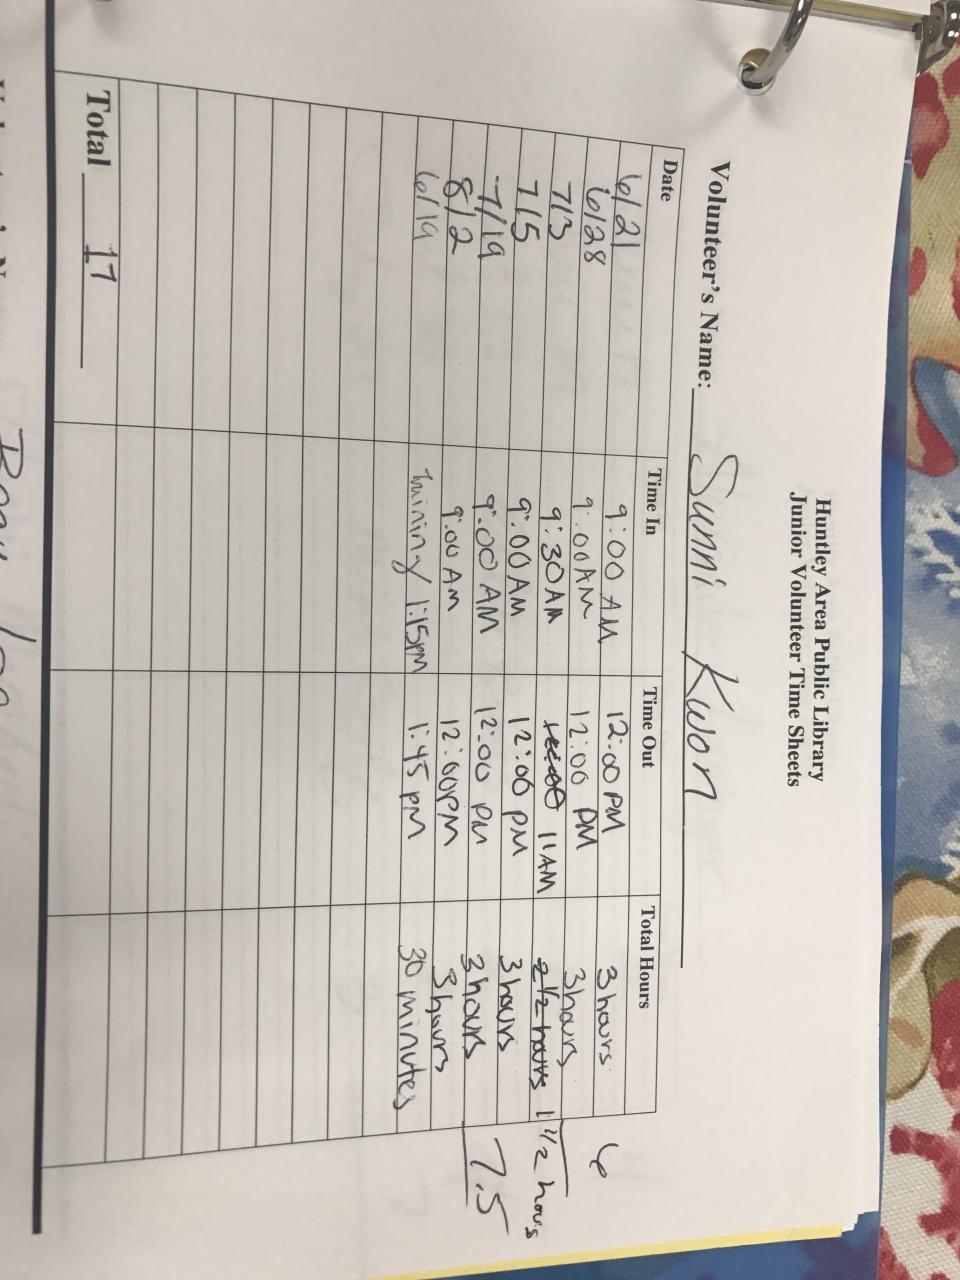 Huntley Area Public Library
Junior Volunteer Time Sheets
Volunteer's Name: Sunni Kwon
Date Time In Time Out Total Hours
6/21 9:00 AM 12:00 PM 3 hours
6/28 9:00 AM 12:00 PM 3 hours 6
7/3 9:30 AM 11 AM 2 1/2 hours 1 1/2 hours
7/5 9:00 AM 12:00 PM 3 hours
7/19 9:00 AM 12:00 PM 3 hours 7.5
8/2 9:00 AM 12:00 PM 3 hours
6/19 training 1:15pm 1:45 pm 30 minutes
Total 17